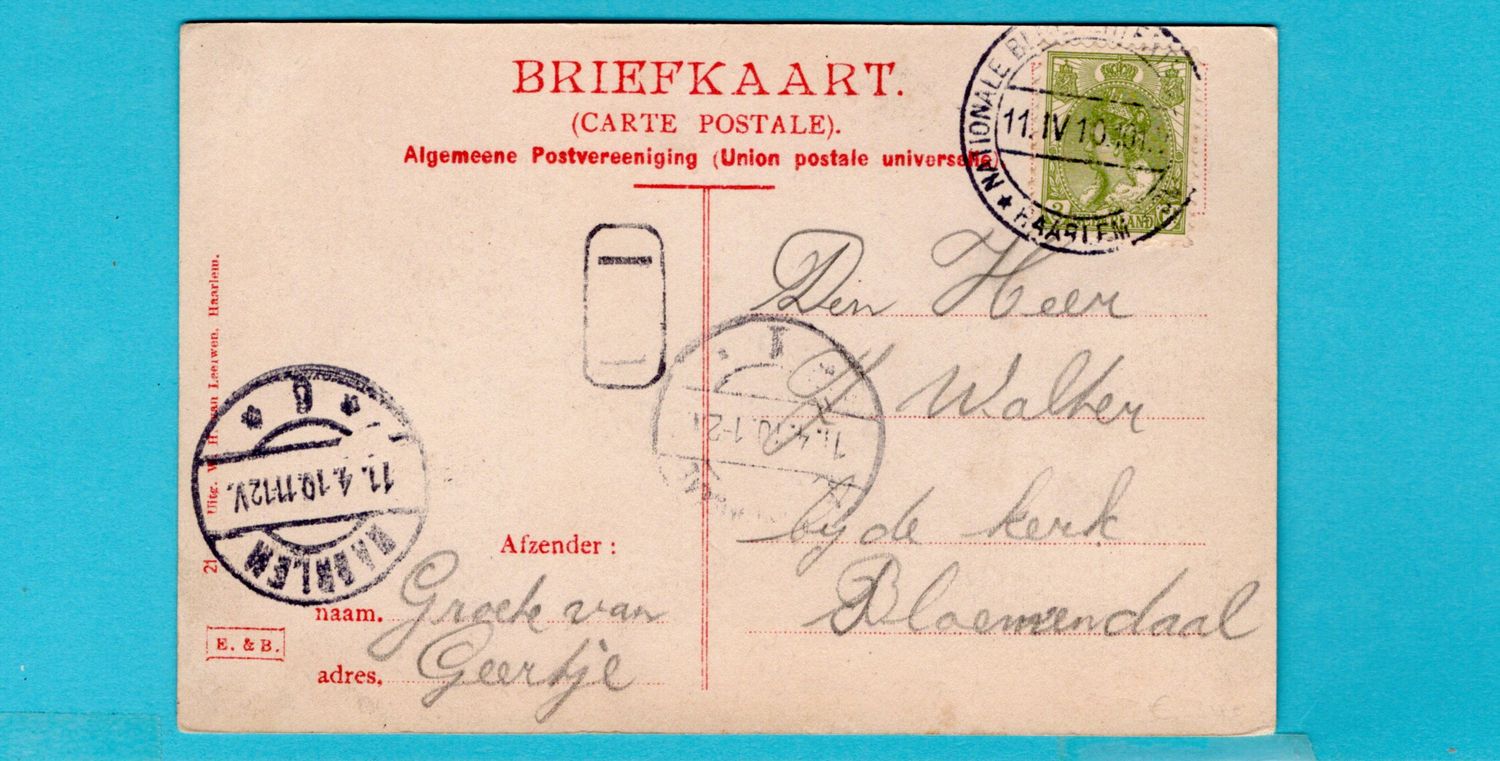 BRIEFKAART.
(CARTE POSTALE).
Algemeene Postvereeniging (Union postale universelle)
NATIONALE
11.IV 10.
★ HAARLEM
Den Heer
Walter
bij de kerk
Bloemendaal
11.4.10.1-2
11.4.10.11-12V.
HAARLEM
Afzender:
naam. Groete van
adres. Geertje
Uitg. van Leeuwen, Haarlem.
21
E. & B.